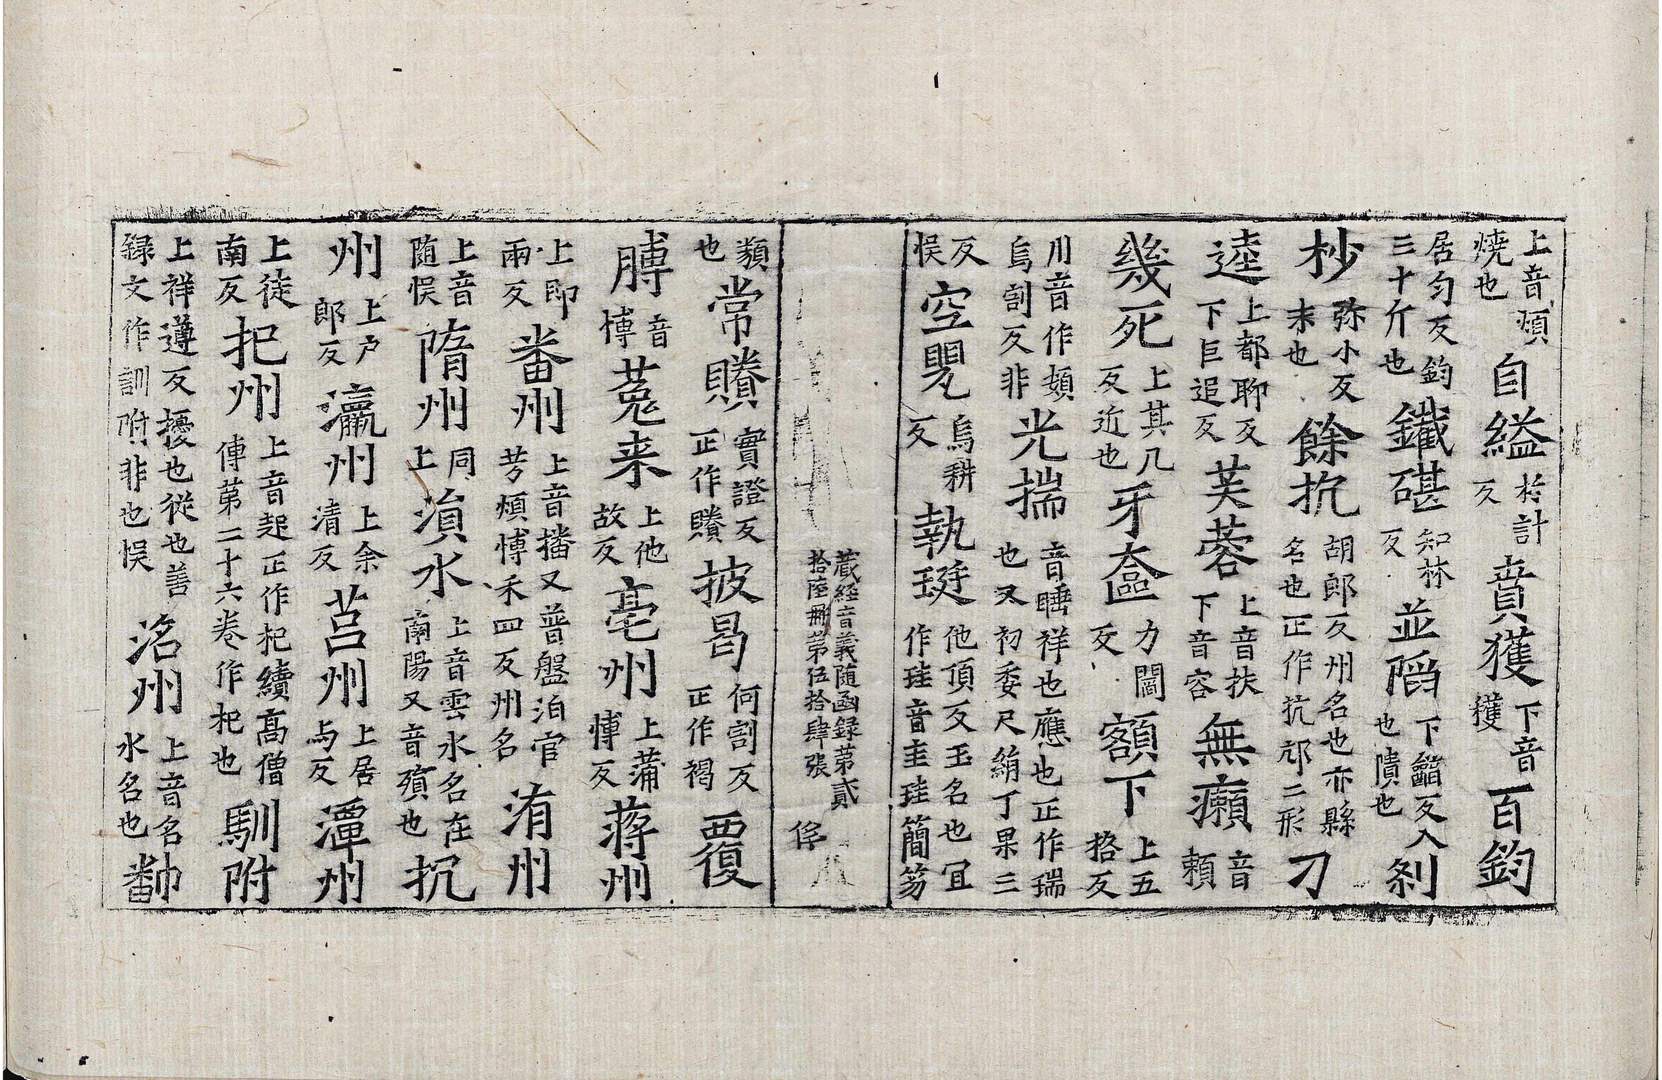 上音煩燒也 自縊 於計反 賁獲 下音擭 百鈞
居勻反鈞三十斤也 鐵碪 知林反 並䧟 下䶢反入也隤也 刹
杪 弥小反末也 餘抗 胡郎反州名也亦縣名也正作抗邟二形 刁
逵 上都聊反下巨追反 芙蓉 上音扶下音容 無癩 音頼
幾死 上其几反近也 牙奩 力閻反 額下 上五格反
川音作頞烏割反非 光揣 音睡祥也應也正作瑞也又初委尺絹丁果三
反悮 空甖 烏耕反 執珽 他頂反玉名也冝作珪音圭珪簡笏
藏經音義随函録第貳拾陸冊第伍拾肆張 侔
纇也 常賸 實證反正作賸 披曷 何割反正作褐 覆
膊 音博 菟来 上他故反 亳州 上蒲博反 蔣州
上即兩反 番州 上音播又普盤泊官芳煩博禾四反州名 洧州
上音随悮 隋州 同上 溳水 上音雲水名在南陽又音殞也 抗
州 上戸郎反 瀛州 上余清反 莒州 上居与反 潭州
上徒南反 杞州 上音起正作杞續髙僧傳苐二十六卷作杞也 馴附
上祥遵反擾也従也善録文作訓附非也悮 洺州 上音名水名也